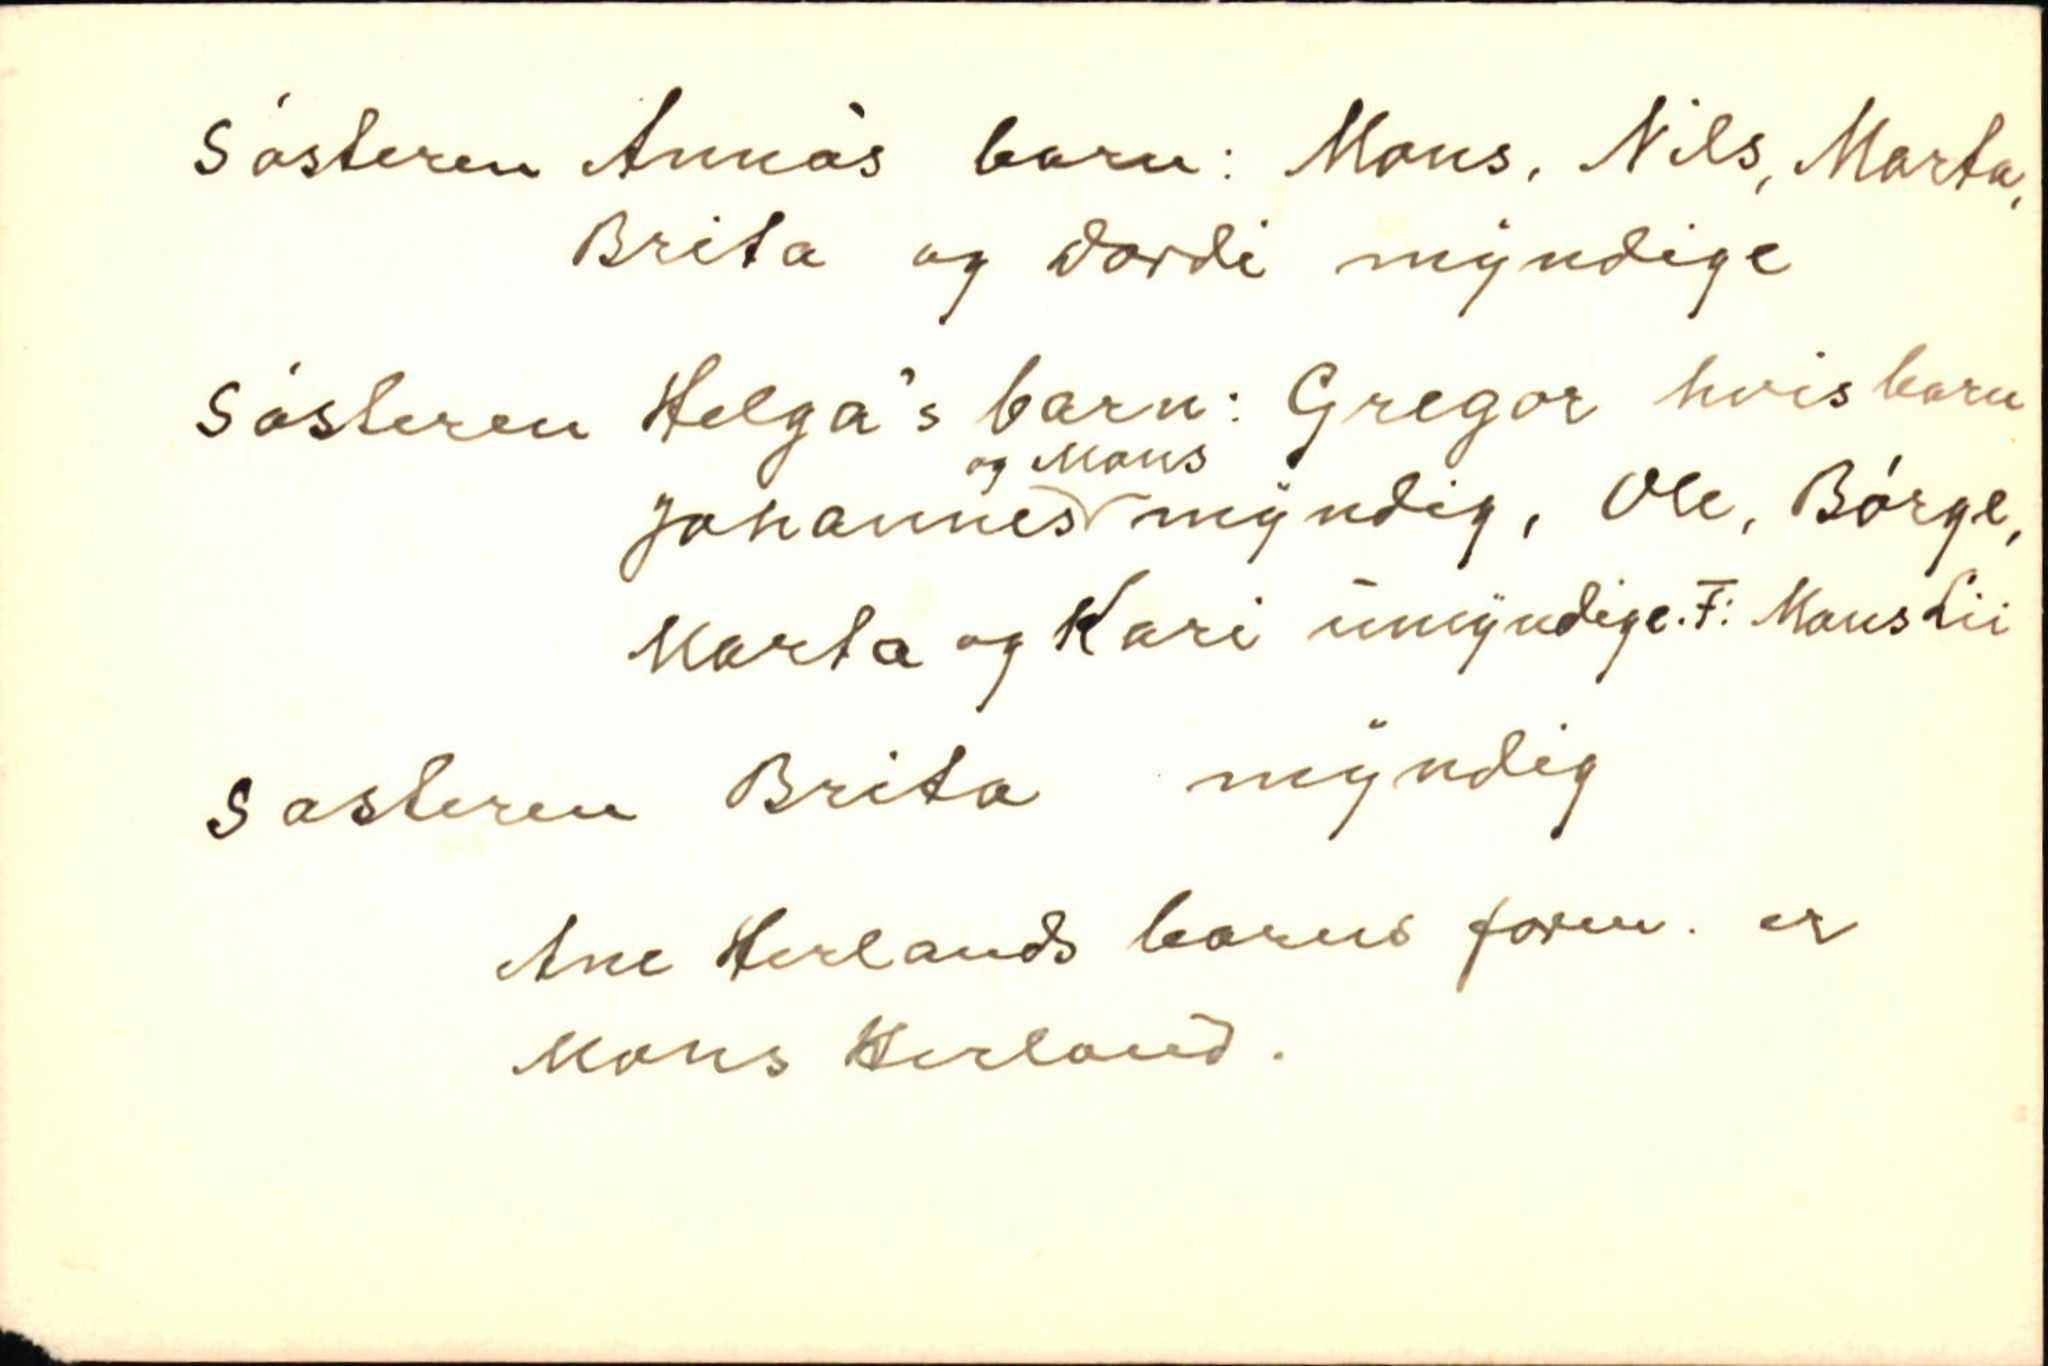 Sósteren Anna's barn: Mons, Nils, Marta,
Brita og Dordi mÿndige
Sósteren Helga's barn: Gregor hvis barn
og Mons
Johannes mÿndig, Ole, Bórge,
Marta og Kari ūmÿndige. F: Mons Lii
Sosteren Brita mÿndig
Ane Herlands barns form. er
Mons Herland.